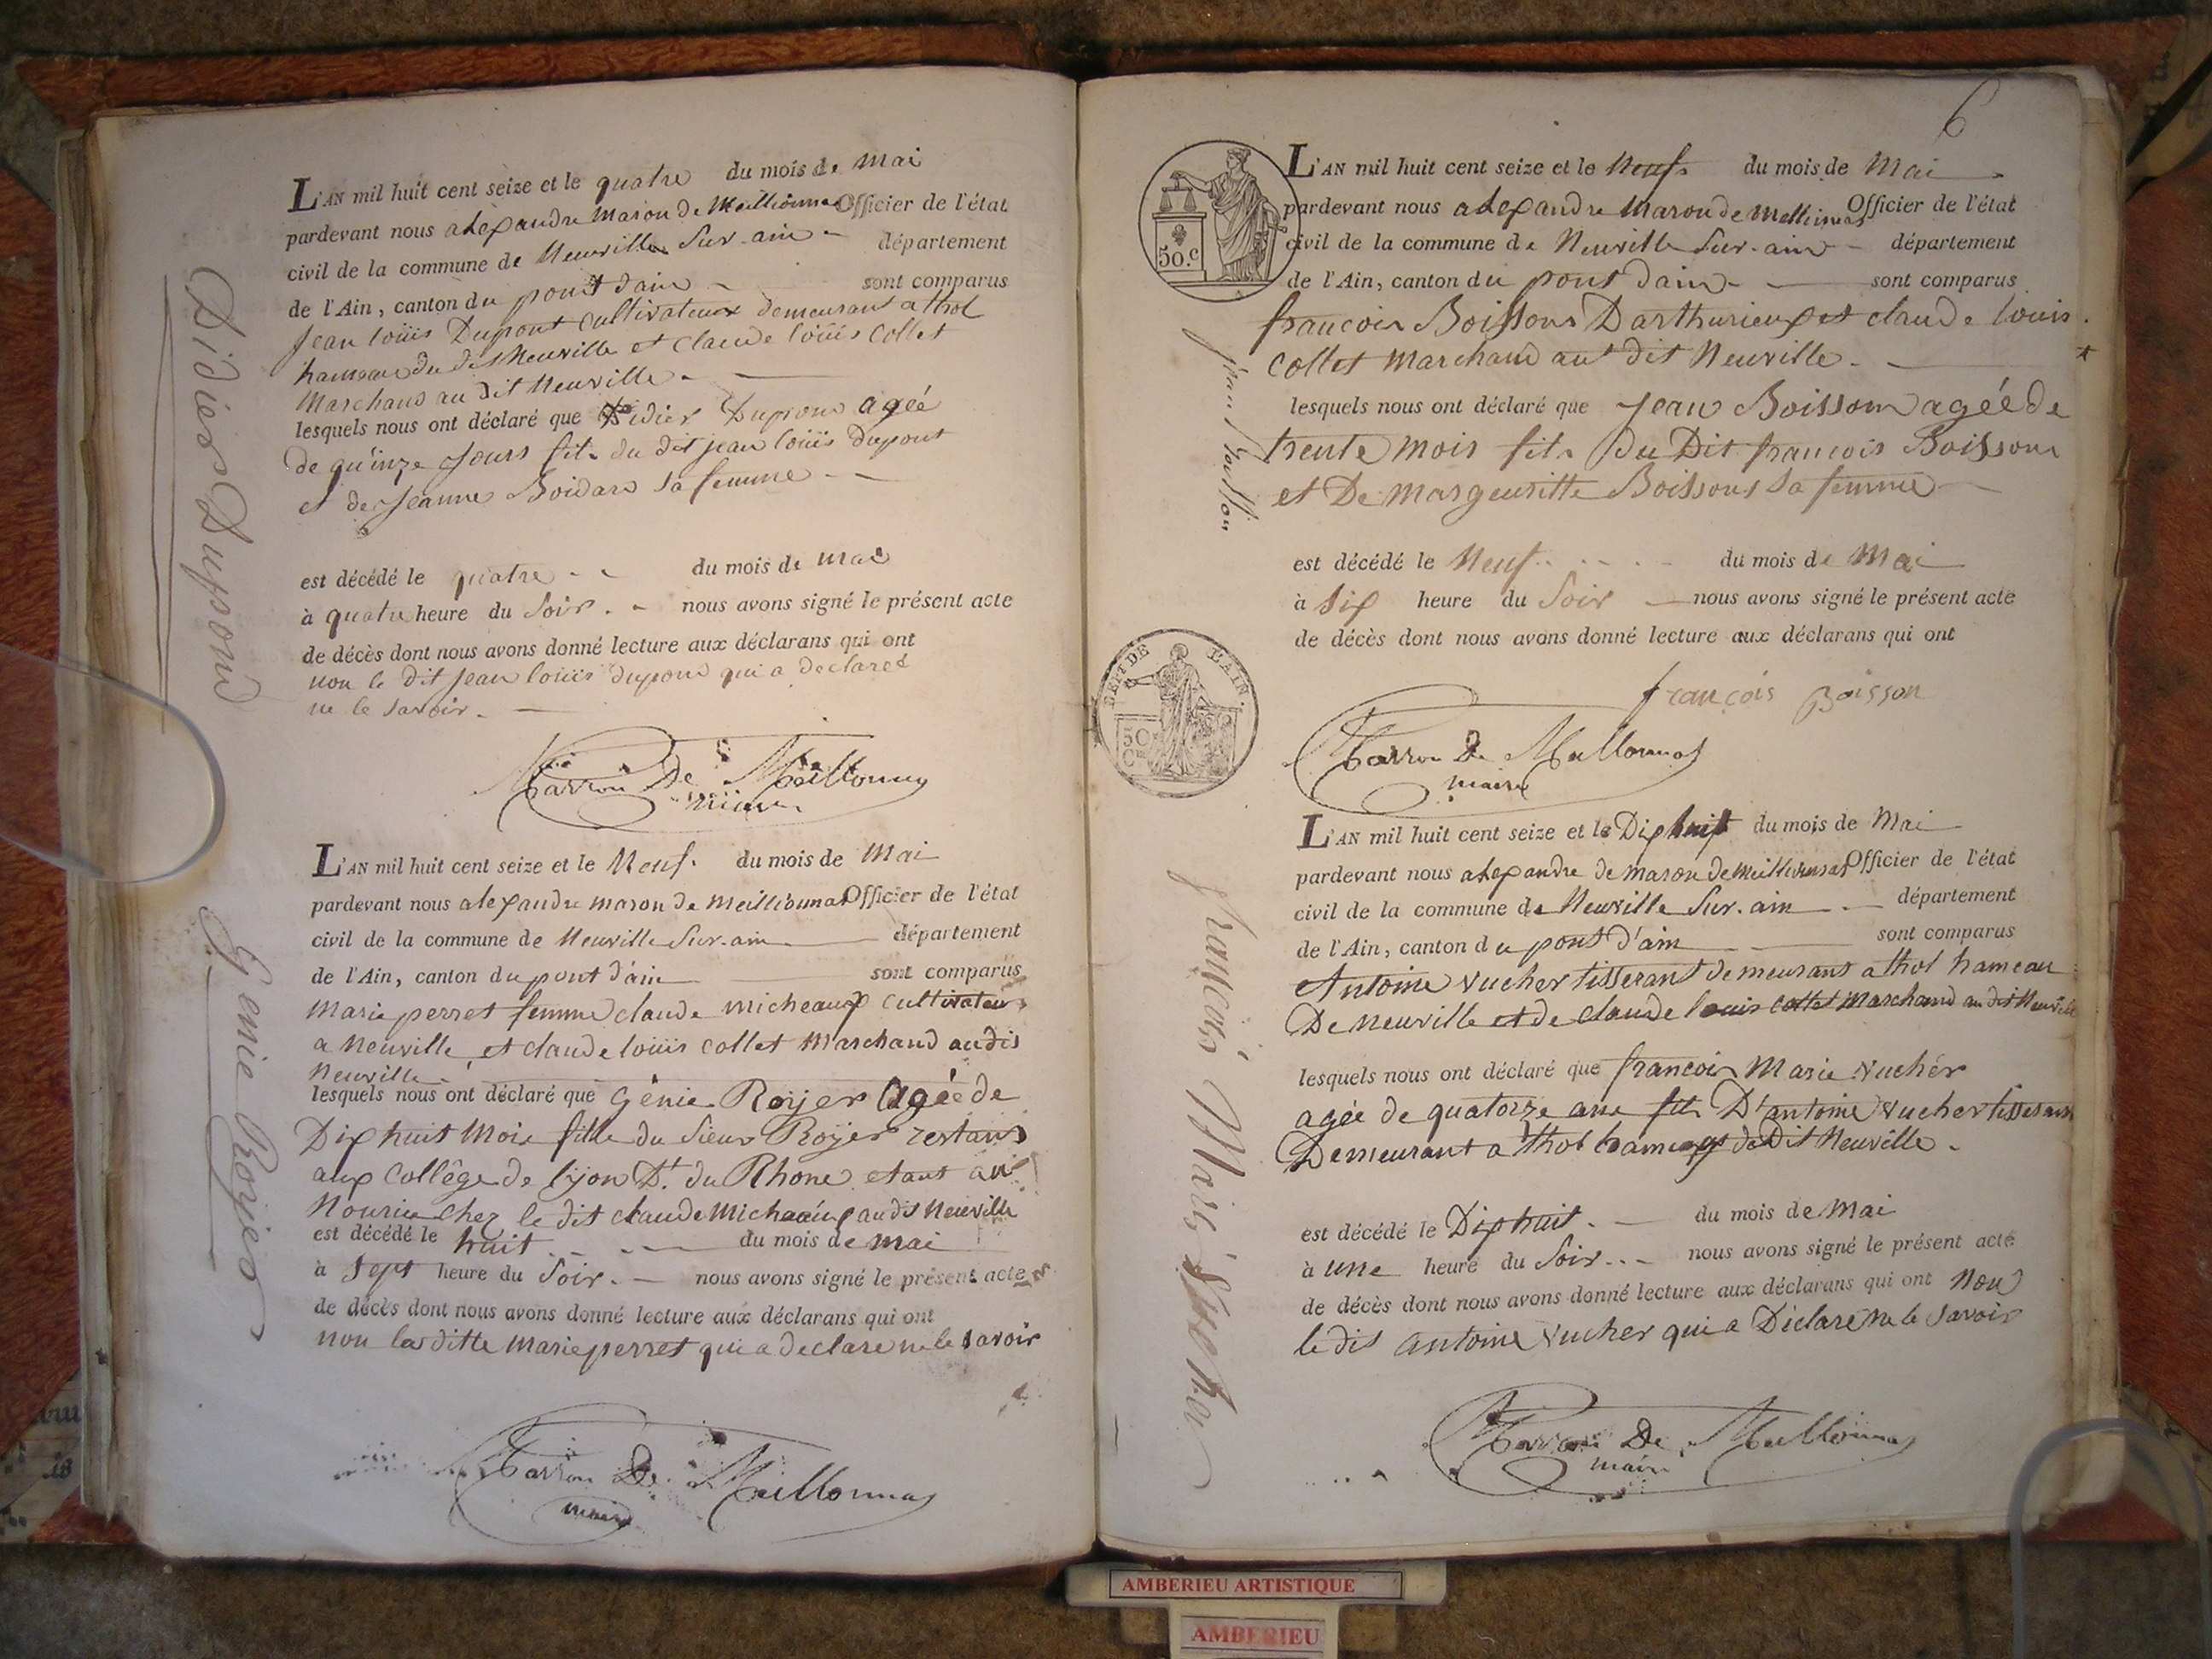 Didier Dupond
L'AN mil huit cent seize et le quatre du mois de Mai
pardevant nous alexandre Maron de Meillionnas Officier de l'état
civil de la commune de Neuville Sur-ain département
de l'Ain, canton du pont dain sont comparus
Jean loüis Dupont cultivateur demeurant a thol
hameau du dit Neuville et claude loüis collet
Marchand au dit Neuville
lesquels nous ont déclaré que Didier Dupond ageé
de quinze Jours fils du dit jean loüis dupont
et de Jeanne Boidard sa femme
est décédé le quatre du mois de mai
à quatre heure du Soir. nous avons signé le présent acte
de décès dont nous avons donné lecture aux déclarans qui ont
non le dit Jean loüis dupond qui a declaret
ne le savoir.
Marron De Meillonnas
maire
Genie Royer
L'AN mil huit cent seize et le Neuf. du mois de Mai
pardevant nous alexandre maron de Meillionnas Officier de l'état
civil de la commune de Neuville Sur-ain département
de l'Ain, canton du pont d'ain sont comparus
Marie perret femme claude micheaux cultivateur
a Neuville et claude loüis collet Marchand au dit
Neuville
lesquels nous ont déclaré que Génie Royer agée de
Dix huit Mois fille du Sieur Roÿer restant
aux Collêge de lyon Dt. du Rhone etant au
Nourice chez le dit claude Micheaux au dit Neuville
est décédé le huit du mois de mai
à Sept heure du Soir. nous avons signé le présent acte
de décès dont nous avons donné lecture aux déclarans qui ont
non la ditte Marie perret qui a declare ne le savoir
Marron De Meillonnas
maire
6
50.c
jean Boisson
L'AN mil huit cent seize et le Neuf du mois de Mai
pardevant nous alexandre Maron de Mellionnas Officier de l'état
civil de la commune de Neuville Sur-ain département
de l'Ain, canton du pont dain sont comparus
francois Boissons Darthurieux et claude louis
collet Marchand au dit Neuville.
lesquels nous ont déclaré que Jean Boisson ageé de
trente mois fils du Dit francois Boissons
et De Margeuritte Boissons Sa femme
est décédé le Neuf du mois de Mai
à Six heure du Soir nous avons signé le présent acte
de décès dont nous avons donné lecture aux déclarans qui ont
françois Boisson
DEPT DE L'AIN.
50
Marron De Meillonnas
maire
françois Marie Vucher
L'AN mil huit cent seize et le Dix huit du mois de Mai
pardevant nous alexandre de maron de Meillionnas Officier de l'état
civil de la commune de Neuville Sur-ain département
de l'Ain, canton du pont d'ain sont comparus
Antoine Vucher tisserant demeurant a thol hameau
De Neuville et de claude louis collet Marchand au dit Neuville
lesquels nous ont déclaré que francois Marie Vucher
agée de quatorze ans fils D'antoine Vucher tisserant
Demeurant a thol hameau du Dit Neuville.
est décédé le Dix huit. du mois de Mai
à une heure du Soir. nous avons signé le présent acte
de décès dont nous avons donné lecture aux déclarans qui ont Non
le dit antoine Vucher qui a Déclaré ne le Savoir
Marron De Meillonnas
maire
AMBERIEU ARTISTIQUE
AMBERIEU